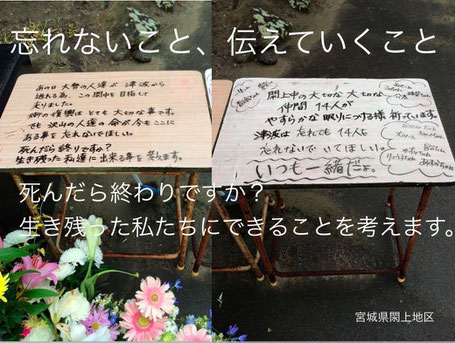 忘れないこと、伝えていくこと
あの日 大勢の人達が 津波から
逃れる為、この閖中を目指して
走りました。
街の復興はとても 大切な事です。
でも 沢山の人達の命が今もここに
ある事を 忘れないでほしい。
死んだら終りですか?
生き残った私達に出来る事を考えます。
閖上中の 大切な 大切な
仲間 14人が
やすらかな 眠りにつける様 祈っています。
津波は 忘れても 14人を
忘れないで いてほしい。
いつも一緒だよ。
死んだら終わりですか?
生き残った私たちにできることを考えます。
宮城県閖上地区